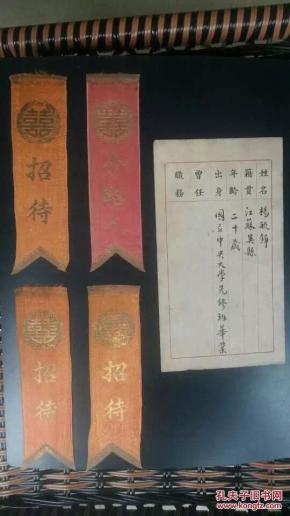 囍
招待
囍
囍
招待
囍
招待
姓名 楊敏錚
籍貫 江蘇吳縣
年齡 二十歲
出身 國立中央大學先修班畢業
曾任
職務
孔夫子旧书网